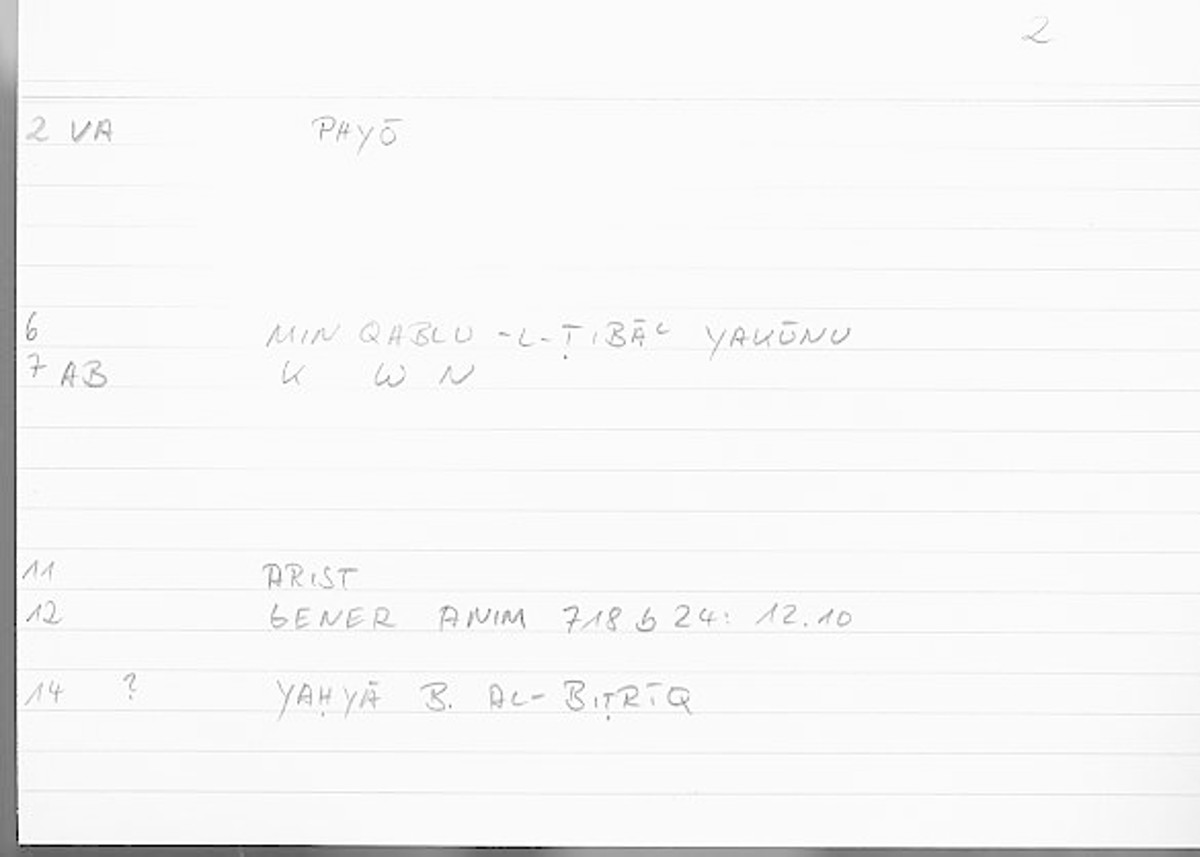 2
2 VA PHYŌ
6 MIN QABLU -L-ṬIBĀʿ YAKŪNU
7 AB K W N
11 ARIST
12 GENER ANIM 718 b 24: 12.10
14 ? YAḤYĀ B. AL-BIṬRĪQ